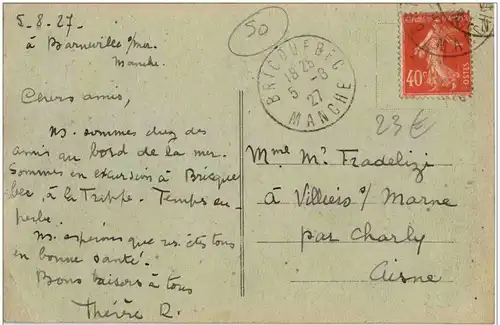 5-8-27
à Barneville s/mer.
Manche.
Chers amis,
Ns. sommes chez des
amis au bord de la mer.
Sommes en excursion à Bricque
bec, à la Trappe. Temps su-
perbe.
Ns. espérons que vs. êtes tous
en bonne santé.
Bons baisers à tous
Thérèse R.
50
BRICQUEBEC
18 25
5 -8
27
MANCHE
40c
POSTES
23€
Mme Mr Fradelizi
à Villiers s/ Marne
par Charly
Aisne